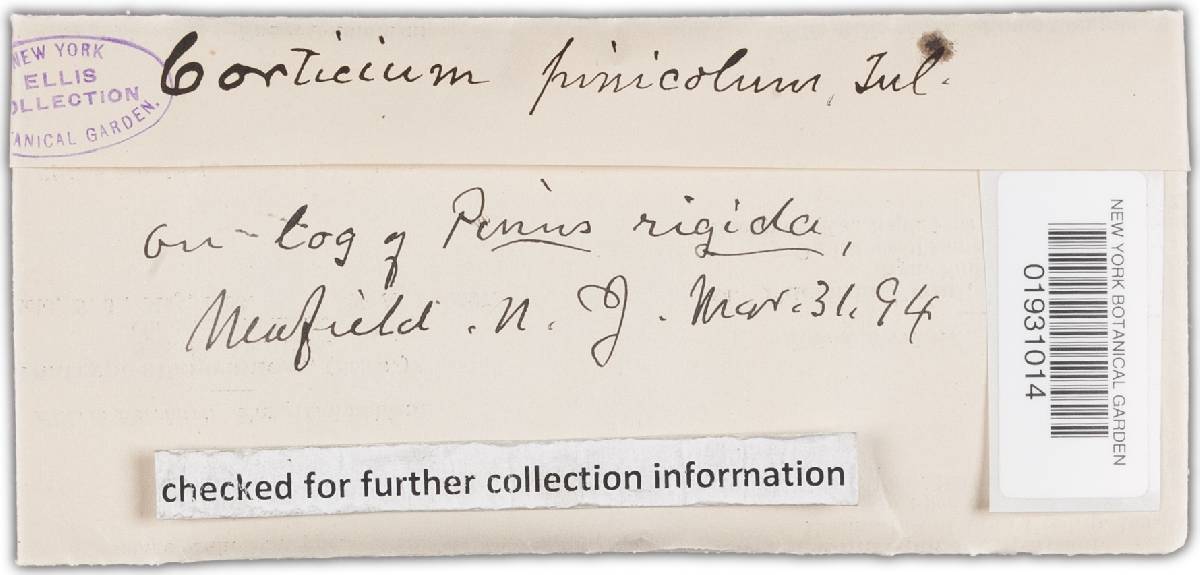 NEW YORK
ELLIS
COLLECTION
BOTANICAL GARDEN.
Corticium pinicolum, Tul.
on log of Pinus rigida,
Newfield. N. J. Mar. 31. 94
checked for further collection information
NEW YORK BOTANICAL GARDEN
01931014